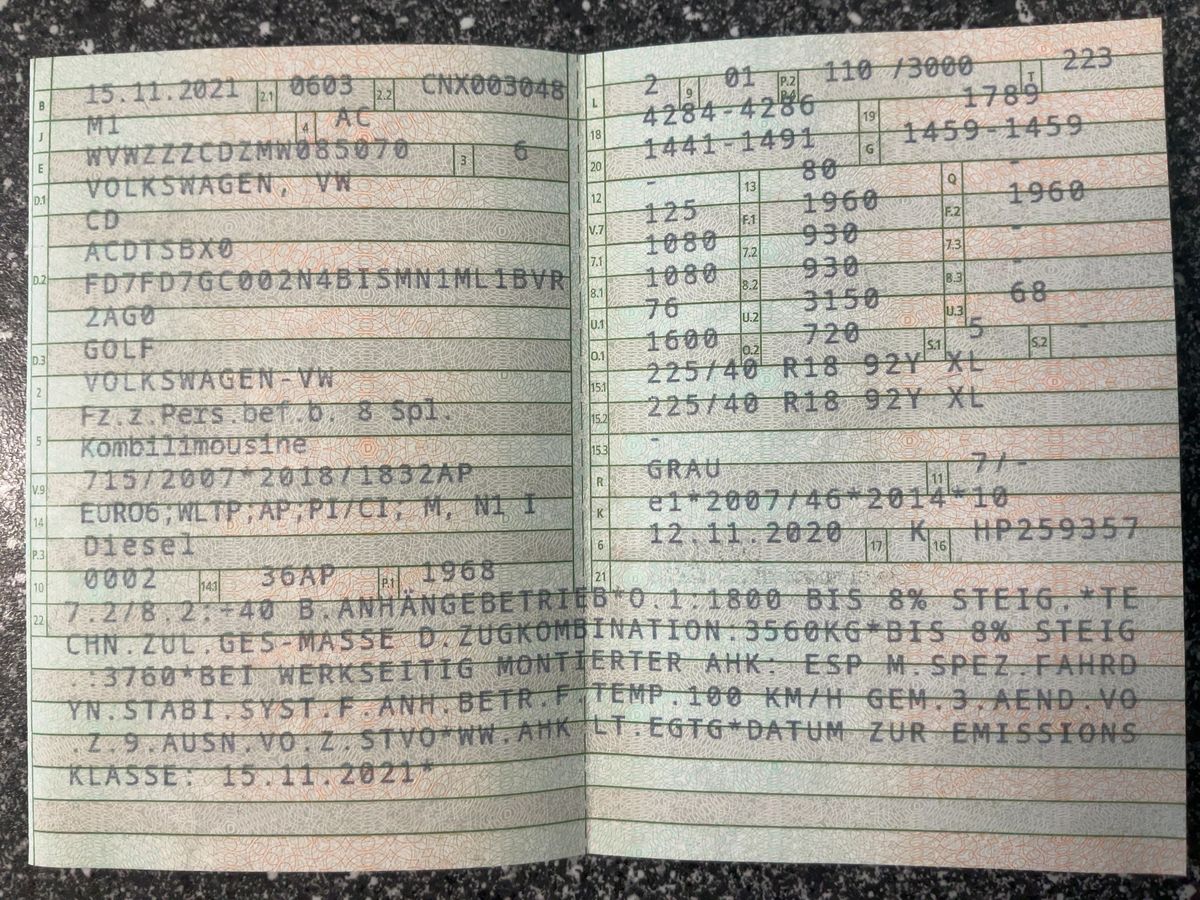 B 15.11.2021 2.1 0603 2.2 CNX003048
J M1 4 AC
E WVWZZZCDZMW085070 3 6
D.1 VOLKSWAGEN, VW
CD
D.2 ACDTSBX0
FD7FD7GC002N4BISMN1ML1BVR
2AG0
D.3 GOLF
2 VOLKSWAGEN-VW
5 Fz.z.Pers.bef.b. 8 Spl.
Kombilimousine
V.9 715/2007*2018/1832AP
14 EURO6;WLTP;AP;PI/CI; M, N1 I
P.3 Diesel
10 0002 14.1 36AP P.1 1968
L 2 9 01 P.2 P.4 110 /3000 T 223
18 4284-4286 19 1789
20 1441-1491 G 1459-1459
12 - 13 80 Q -
V.7 125 F.1 1960 F.2 1960
7.1 1080 7.2 930 7.3 -
8.1 1080 8.2 930 8.3 -
U.1 76 U.2 3150 U.3 68
O.1 1600 O.2 720 S.1 5 S.2 -
15.1 225/40 R18 92Y XL
15.2 225/40 R18 92Y XL
15.3 -
R GRAU 11 7/-
K e1*2007/46*2014*10
6 12.11.2020 17 K 16 HP259357
21
22 7.2/8.2:+40 B.ANHÄNGEBETRIEB*O.1:1800 BIS 8% STEIG.*TE
CHN.ZUL.GES-MASSE D.ZUGKOMBINATION.3560KG*BIS 8% STEIG
.:3760*BEI WERKSEITIG MONTIERTER AHK: ESP M.SPEZ.FAHRD
YN.STABI.SYST.F.ANH.BETR.F.TEMP.100 KM/H GEM.3.AEND.VO
.Z.9.AUSN.VO.Z.STVO*WW.AHK LT.EGTG*DATUM ZUR EMISSIONS
KLASSE: 15.11.2021*